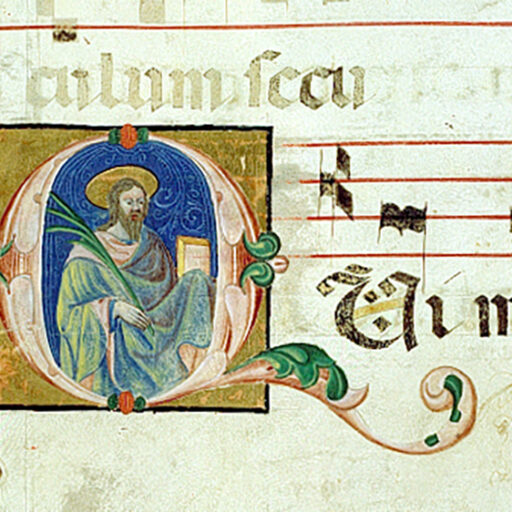 culum secu
Qui m